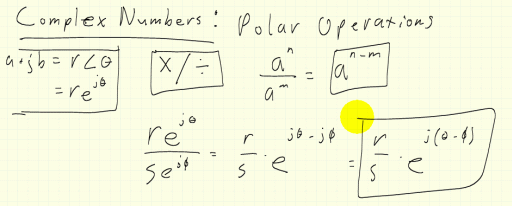 Complex Numbers: Polar Operations
a+jb = r∠θ
= re^{jθ}
×/÷
a^n / a^m = a^{n-m}
re^{jθ} / se^{jϕ} = r/s · e^{jθ-jϕ} = r/s · e^{j(θ-ϕ)}